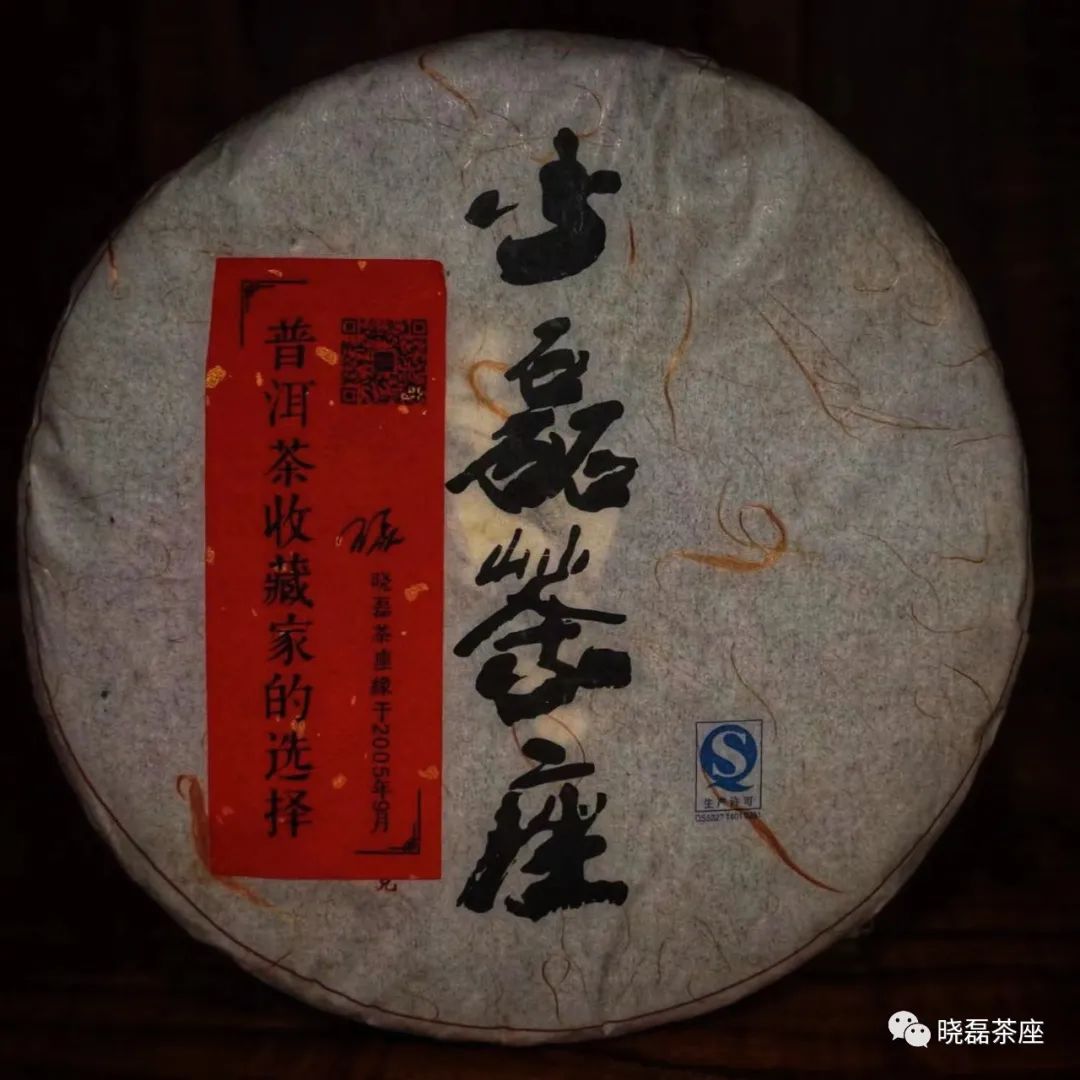 磊茶座
普洱茶收藏家的选择
晓磊茶座緣于2005年9月
克
S
生产许可
晓磊茶座